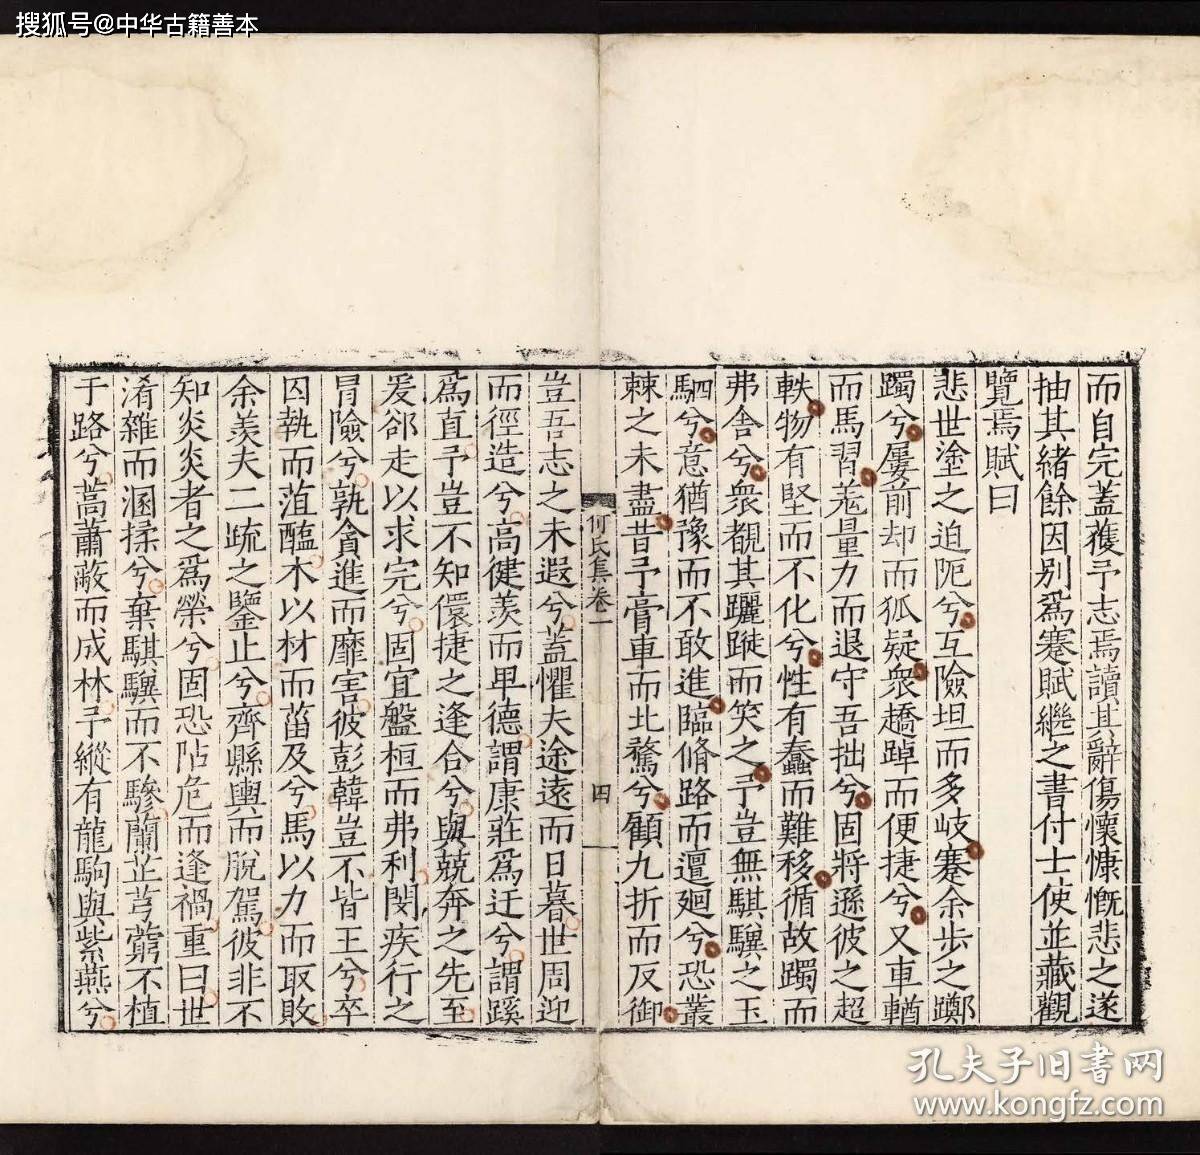 搜狐号@中华古籍善本
而自完蓋獲予志焉讀其辭傷懷慷慨悲之遂
抽其緒餘因别爲蹇賦繼之書付士使並藏觀
覽焉賦曰
悲世塗之迫阨兮互險坦而多岐蹇余步之躑
躅兮屢前却而狐疑衆趫踔而便捷兮又車輶
而馬習羌量力而退守吾拙兮固將遜彼之超
軼物有堅而不化兮性有蠢而難移循故躅而
弗舍兮衆覩其躧蹝而笑之予豈無騏驥之玉
駟兮意猶豫而不敢進臨脩路而邅廻兮恐叢
棘之未盡昔予膏車而北騖兮顧九折而反御
何氏集卷一
四
豈吾志之未遐兮蓋懼夫途遠而日暮世周迎
而徑造兮高徤羨而甲德謂康莊爲迂兮謂蹊
爲直予豈不知儇捷之逢合兮與兢奔之先至
爰郤走以求完兮固宜盤桓而弗利閔疾行之
冒險兮孰貪進而靡害彼彭韓豈不皆王兮卒
囚執而菹醢木以材而菑及兮馬以力而取敗
余羨夫二疏之鑒止兮齊縣輿而脫駕彼非不
知炎炎者之爲榮兮固恐阽危而逢禍重曰世
淆雜而溷揉兮棄騏驥而不驂蘭芷芎藭不植
于路兮蒿蕭蔽而成林予縱有龍駒與紫燕兮
孔夫子旧书网
www.kongfz.com